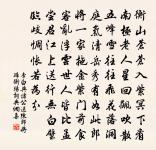 衡山蒼蒼入紫冥下看
南極老人星回飆吹散
五峰雪往往飛花落洞
庭氣清岳秀有如此郎
將一家拖金紫門前食
客亂浮雲世人皆比孟
嘗君江上送行無白璧
臨岐惆悵若為分
李白與諸公送陳郎將
歸衡陽